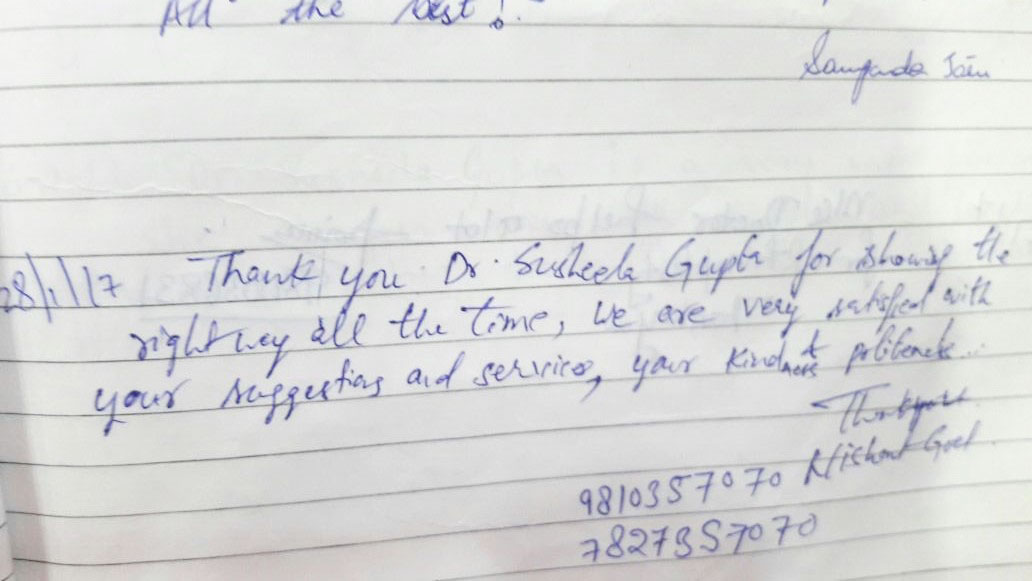 All the best!
Jain
28/1/17 Thank you Dr. Susheela Gupta for showing the
right way all the time, We are very satisfied with
your suggestions and services, your kindness & politeness..
Thankyou
Nishant Goel
9810357070
7827357070